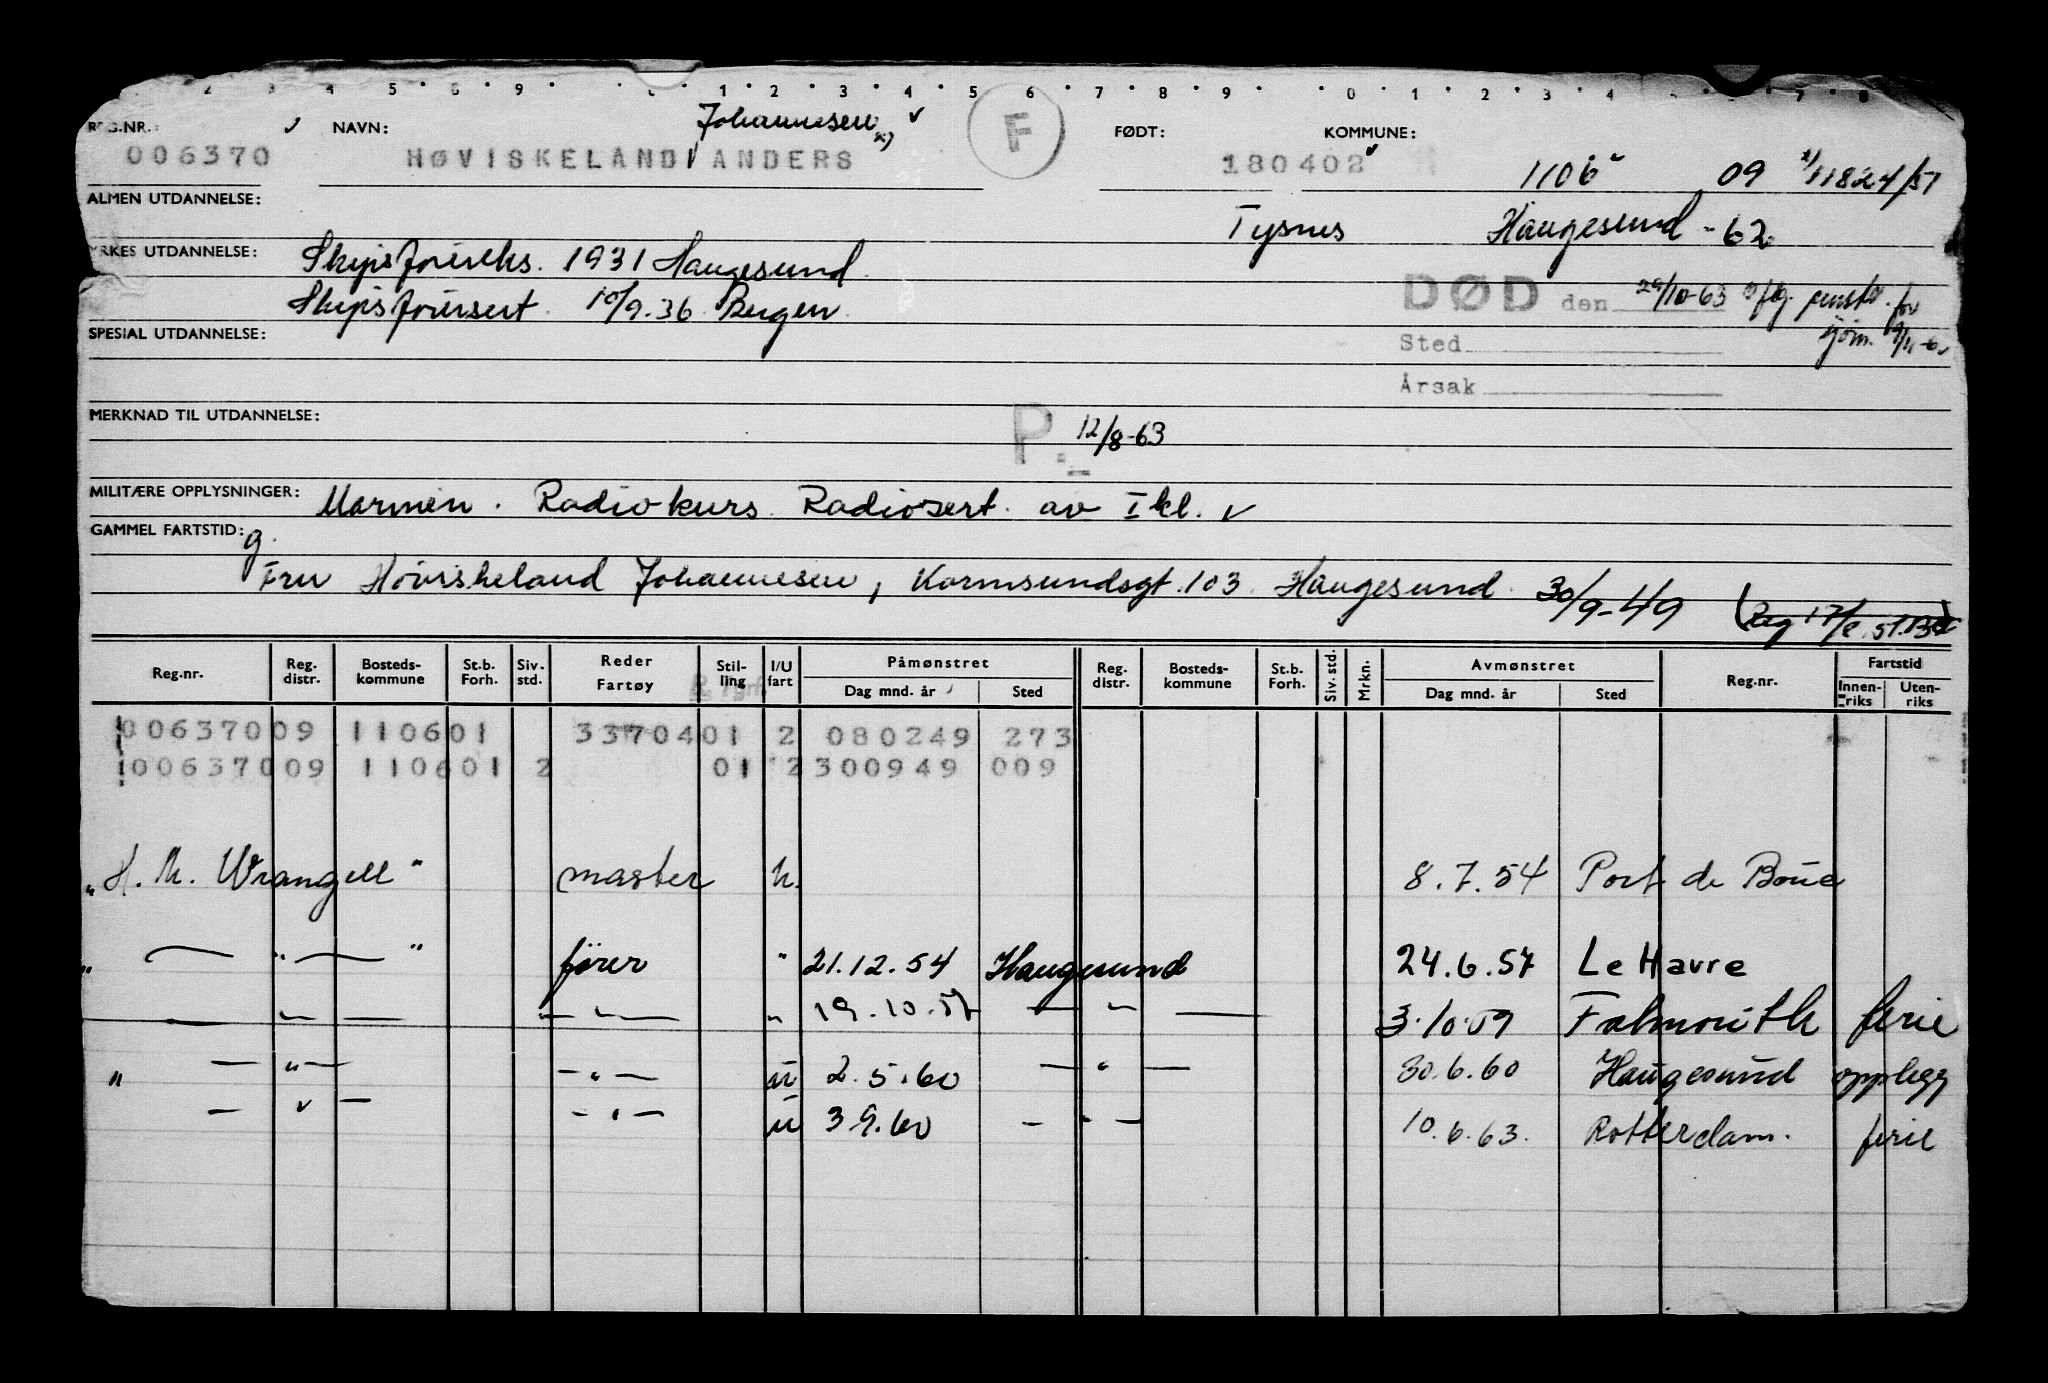 2 3 4 5 6 9 1 2 3 4 5 6 7 8 9 0 1 2 3 4 7 8
REG.NR.: NAVN: Johannesen x) F FØDT: KOMMUNE:
006370 HØVISKELAND ANDERS 180402 1106 09 x/11824/51
ALMEN UTDANNELSE: Tysnes Haugesund - 62
YRKES UTDANNELSE: Skipsførereks. 1931 Haugesund.
Skipsførersert. 10/9.36 Bergen.
DØD den 29/10-63 iflg. penstr. for sjøm.
SPESIAL UTDANNELSE:
Sted
Årsak
MERKNAD TIL UTDANNELSE:
P. 12/8-63
MILITÆRE OPPLYSNINGER: Marinen. Radiokurs. Radiosert. av I kl. v
GAMMEL FARTSTID: g.
Fru Høviskeland Johannesen, Karmsundsgt. 103. Haugesund. 30/9-49
Reg.nr. Reg. distr. Bosteds- kommune St.b. Forh. Siv. std. Reder Fartøy Stil- ling I/U fart Påmønstret Dag mnd. år Sted Reg. distr. Bosteds- kommune St.b. Forh. Siv. std. Mrkn. Avmønstret Dag mnd. år Sted Reg.nr. Fartstid Innen- riks Uten- riks
00637009 110601 3370401 2 080249 273
00637009 110601 2 01 2 300949 009
"H. M. Wrangell" master u. 8.7.54 Port de Boue
" — " — " fører " 21.12.54 Haugesund 24.6.57 Le Havre
— " — " — " — " 19.10.57 — " — 3.10.59 Falmouth ferie
" — " — — " — u 2.5.60 — " — 30.6.60 Haugesund opplegg
— " — — " — u 3 9.60 — " — 10.6.63. Rotterdam. ferie